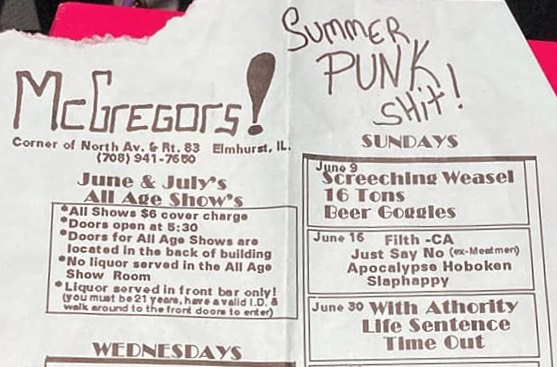 McGregors!
Corner of North Av. & Rt. 83 Elmhurst, IL.
(708) 941-7650
June & July's
All Age Show's
*All Shows $6 cover charge
*Doors open at 5:30
*Doors for All Age Shows are
located in the back of building
*No liquor served in the All Age
Show Room
*Liquor served in front bar only!
(you must be 21 years, have a valid I.D. &
walk around to the front doors to enter)
WEDNESDAYS
SUMMER
PUNK
SHit!
SUNDAYS
June 9
Screeching Weasel
16 Tons
Beer Goggles
June 16 Filth -CA
Just Say No (ex-Meatmen)
Apocalypse Hoboken
Slaphappy
June 30 With Athority
Life Sentence
Time Out